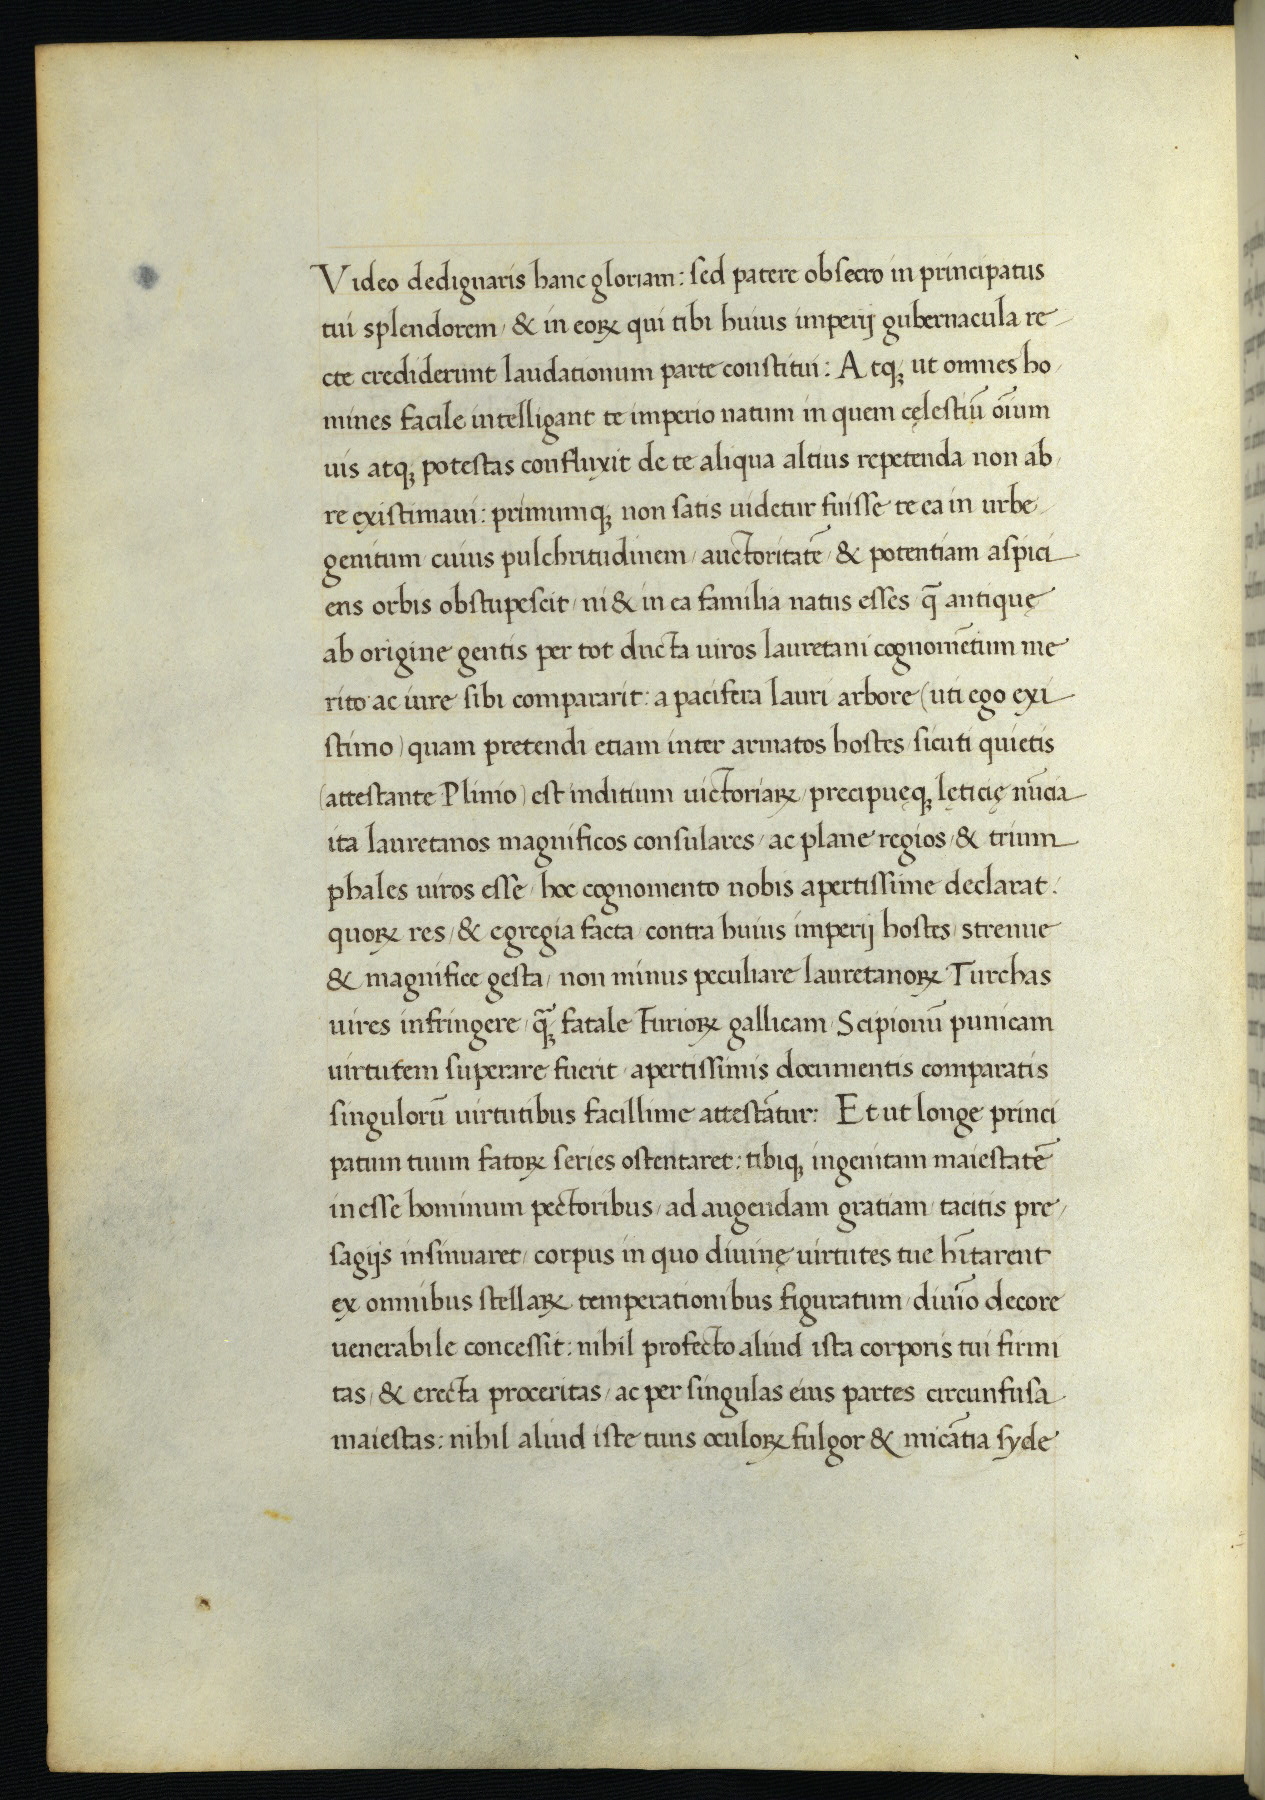 Video dedignaris hanc gloriam: sed patere obsecro in principatus
tui splendorem, & in eoꝝ qui tibi huius imperij gubernacula re
cte crediderunt laudationum parte constitui: Atq; ut omnes ho
mines facile intelligant te imperio natum in quem cęlestiũ oĩum
uis atq; potestas confluxit de te aliqua altius repetenda non ab
re existimaui: primumq; non satis uidetur fuisse te ea in urbe
genitum cuius pulchritudinem, auctoritatẽ, & potentiam aspici
ens orbis obstupescit, ni & in ea familia natus esses q̃ antiquę
ab origine gentis per tot ducta uiros lauretani cognomẽtum me
rito ac iure sibi compararit: a pacifera lauri arbore (uti ego exi
stimo) quam pretendi etiam inter armatos hostes, sicuti quietis
(attestante Plinio) est inditium uictoriaꝝ, precipuęq; lęticię nũcia
ita lauretanos magnificos consulares, ac plane regios, & trium
phales uiros esse, hoc cognomento nobis apertissime declarat.
quoꝝ res, & egregia facta contra huius imperij hostes strenue
& magnifice gesta, non minus peculiare lauretanoꝝ Turchas
uires infringere, q̃; fatale Furioꝝ gallicam, Scipionũ punicam
uirtutem superare fuerit, apertissimis documentis comparatis
singulorũ uirtutibus facillime attestãtur: Et ut longe princi
patum tuum fatoꝝ series ostentaret: tibiq; ingenitam maiestatẽ
inesse hominum pectoribus, ad augendam gratiam, tacitis pre
sagijs insinuaret, corpus in quo diuinę uirtutes tue hĩtarent
ex omnibus stellaꝝ temperationibus figuratum, diuĩo decore
uenerabile concessit: nihil profecto aliud ista corporis tui firmi
tas, & erecta proceritas, ac per singulas eius partes circunfusa
maiestas: nihil aliud iste tuus oculoꝝ fulgor & micãtia syde